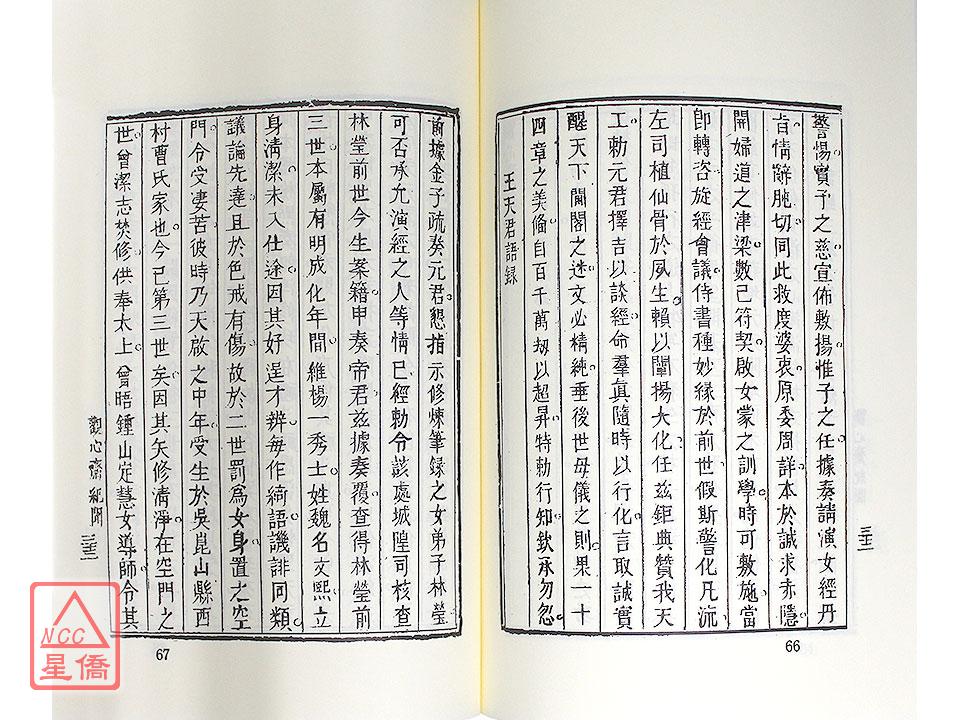 誓惕寶予之慈宣佈敷揚惟子之任據奏請演女經丹
旨情辭肫切同此救度婆衷原委周詳本於誠求赤隱
開婦道之津梁數已符契啟女蒙之訓學時可敷施當
卽轉咨旋經會議侍書種妙緣於前世假斯警化凡流
左司植仙骨於夙生賴以闡揚大化任茲鉅典贊我天
工勅元君擇吉以談經命羣真隨時以行化言取誠實
醒天下閨閣之迷文必精純垂後世毋儀之則果一十
四章之美備自百千萬刼以超昇特勅行知欽承勿忽
王天君語録
三三
66
前據金子疏奏元君懇指示修煉筆録之女弟子林瑩
可否承允演經之人等情已經勅令該處城隍司核查
林瑩前世今生案籍申奏帝君茲據奏覆查得林瑩前
三世本屬有明成化年間維楊一秀士姓魏名文熙立
身清潔未入仕途因其好逞才辨每作綺語譏誹同類
議論先達且於色戒有傷故於二世罰爲女身置之空
門令受淒苦彼時乃天啟之中年受生於吳崑山縣西
村曹氏家也今已第三世矣因其矢修清淨在空門之
世曾潔志焚修供奉太上曾晤鍾山定慧女導師令其
觀心齋紀聞
三三
67
NCC
星僑